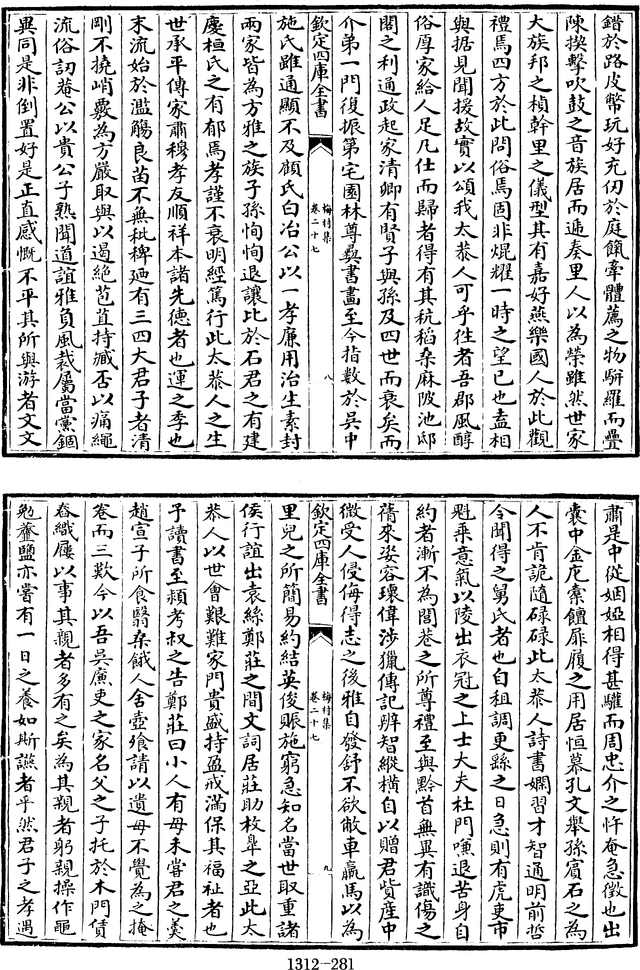 錯於路皮幣玩好充仞於庭籩牽體薦之物駢羅而疊
陳揆擊吹鼓之音族居而遞奏里人以為榮雖然世家
大族邦之楨幹里之儀型其有嘉好燕樂國人於此觀
禮焉四方於此問俗焉固非焜耀一時之望已也盍相
與据見聞援故實以頌我太恭人可乎徃者吾郡風醇
俗厚家給人足凡仕而歸者得有其秔稻桑麻陂池邸
閣之利通政起家清卿有賢子與孫及四世而衰矣而
介第一門復振第宅園林尊彝書畫至今指數於吳中
欽定四庫全書
梅村集
卷二十七
八
施氏雖通顯不及顧氏白冶公以一孝廉用治生素封
兩家皆為方雅之族子孫恂恂退讓比於石君之有建
慶桓氏之有郁焉孝謹不衰明經篤行此太恭人之生
世承平傳家肅穆孝友順祥本諸先德者也運之季也
末流始於濫觴良苗不無秕稗廼有三四大君子者清
剛不撓峭覈為方嚴取與以遏絶苞苴持臧否以痛繩
流俗訒菴公以貴公子熟聞道誼雅負風裁屬當黨錮
異同是非倒置好是正直感慨不平其所與游者文文
肅是中從姻婭相得甚驩而周忠介之忤奄急徴也出
囊中金庀橐饘屝屨之用居恒慕孔文舉孫賓石之為
人不肯詭隨碌碌此太恭人詩書嫻習才智通明前哲
令聞得之舅氏者也自租調更繇之日急則有虎吏市
魁乘意氣以陵出衣冠之上士大夫杜門嗛退苦身自
約者漸不為閭巷之所尊禮至與黔首無異有識傷之
蓿來姿容瓌偉涉獵傳記辨智縱横自以贈君貲産中
微受人侵侮得志之後雅自發舒不欲敝車羸馬以為
欽定四庫全書
梅村集
卷二十七
九
里兒之所簡易約結英俊賑施窮急知名當世取重諸
侯行誼出袁絲鄭莊之間文詞居莊助枚臯之亞此太
恭人以世會艱難家門貴盛持盈戒滿保其福祉者也
予讀書至潁考叔之告鄭莊曰小人有母未嘗君之羮
趙宣子所食翳桑餓人舍壺飱請以遺母不覺為之掩
卷而三歎今以吾吳廉吏之家名父之子托於木門賃
舂織屨以事其親者多有之矣為其親者躬親操作黽
勉虀鹽亦嘗有一日之養如斯讌者乎然君子之孝遇
1312—281